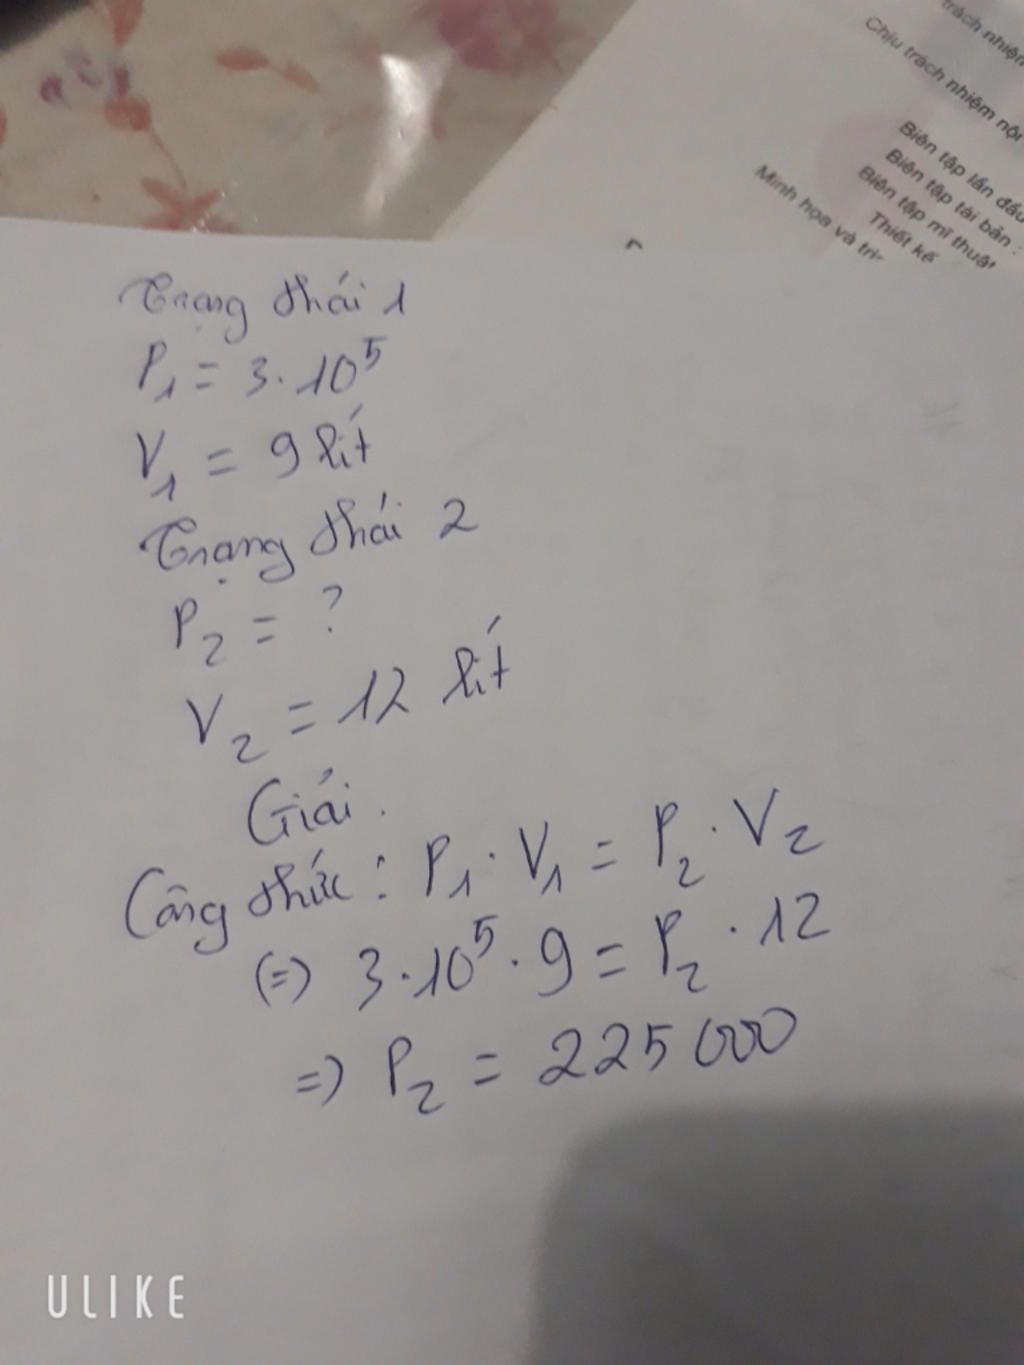 trách nhiệm
Chịu trách nhiệm nội
Biên tập lần đầu
Biên tập tái bản :
Biên tập mĩ thuật
Thiết kế
Minh họa và
Trạng thái 1
P₁ = 3.10⁵
V₁ = 9 lít
Trạng thái 2
P₂ = ?
V₂ = 12 lít
Giải.
Công thức : P₁ . V₁ = P₂ . V₂
(=) 3.10⁵ . 9 = P₂ . 12
=) P₂ = 225 000
ULIKE